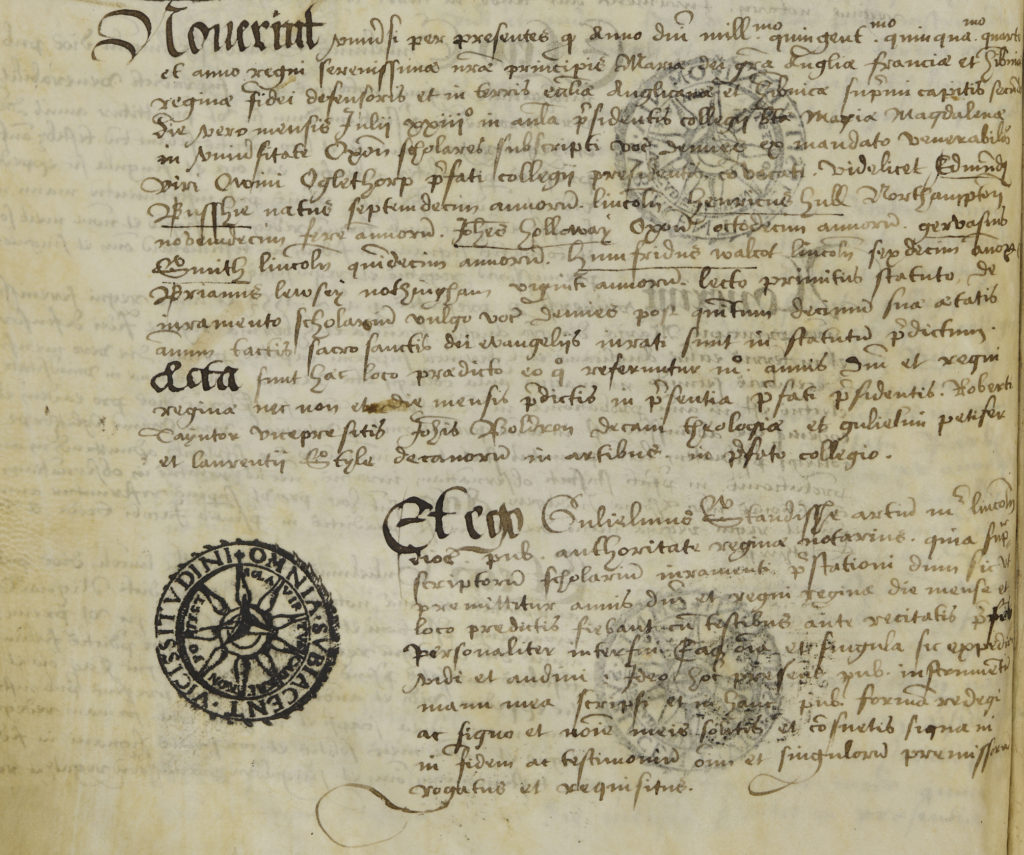 Noverint universi per presentes q Anno dm mill.mo quingent.mo quinqua.mo quarto
et anno regni serenissimæ nræ principis Mariæ dei gra Angliæ franciæ et Hibniæ
reginæ fidei defensoris et in terris ecclie Anglicanæ et Hibnicæ supmi capitis secundo
die vero mensis Julii xxiiiio in aula psidentis collegii bte Mariæ Magdalenæ
in universitate Oxon scholares subscripti voc demies ex mandato venerabilis
viri Owini Oglethorp pfati collegii presidentis covocati. videlicet Edmundus
Busshie natus septemdecim annorum. lincoln. Henricus Hull Northampton
novemdecim fere annorum. Johes Holloway Oxon octodecim annorum. gervasius
Smith lincoln quindecim annorum. Humfridus walcot lincoln sexdecim annor
Brianus lewsey notingham viginti annorum. lecto primitus statuto de
iuramento scholarium vulgo voc demies post quintum decimum suæ ætatis
annum tactis sacrosanctis dei evangeliis iurati sunt in statutum pdictum.
Acta sunt hæc loco prædicto eo qo referuntur mo. annis Dni et regni
reginæ nec non et die mensis pdictis in psentia pfati psidentis. Roberti
Tayntor vicepresitis Johis Boldron decani theologiæ et gulielmi petifer
et laurentii Style decanorum in artibus in pfato collegio.
Et ego Gulielmus Standisshe artium mr lincoln
dioc. pub. authoritate reginæ notarius. quia
scriptorum scholarium iuramenti pstationi dum sic ut
premittitur annis dni et regni reginæ die mense et
loco predictis fiebant cu testibus ante recitatis
personaliter interfui Eaq oia et singula sic
vidi et audivi. Ideo hoc presens pub. instrumentu
manu mea scripsi et in hanc pub. formam redegi
ac signo et noie meis solitis et cosuetis signavi
in fidem ac testimonium oiu et singulorum premissorum
rogatus et requisitus.
OMNIA · SVBIACENT · VICISSITVDINI